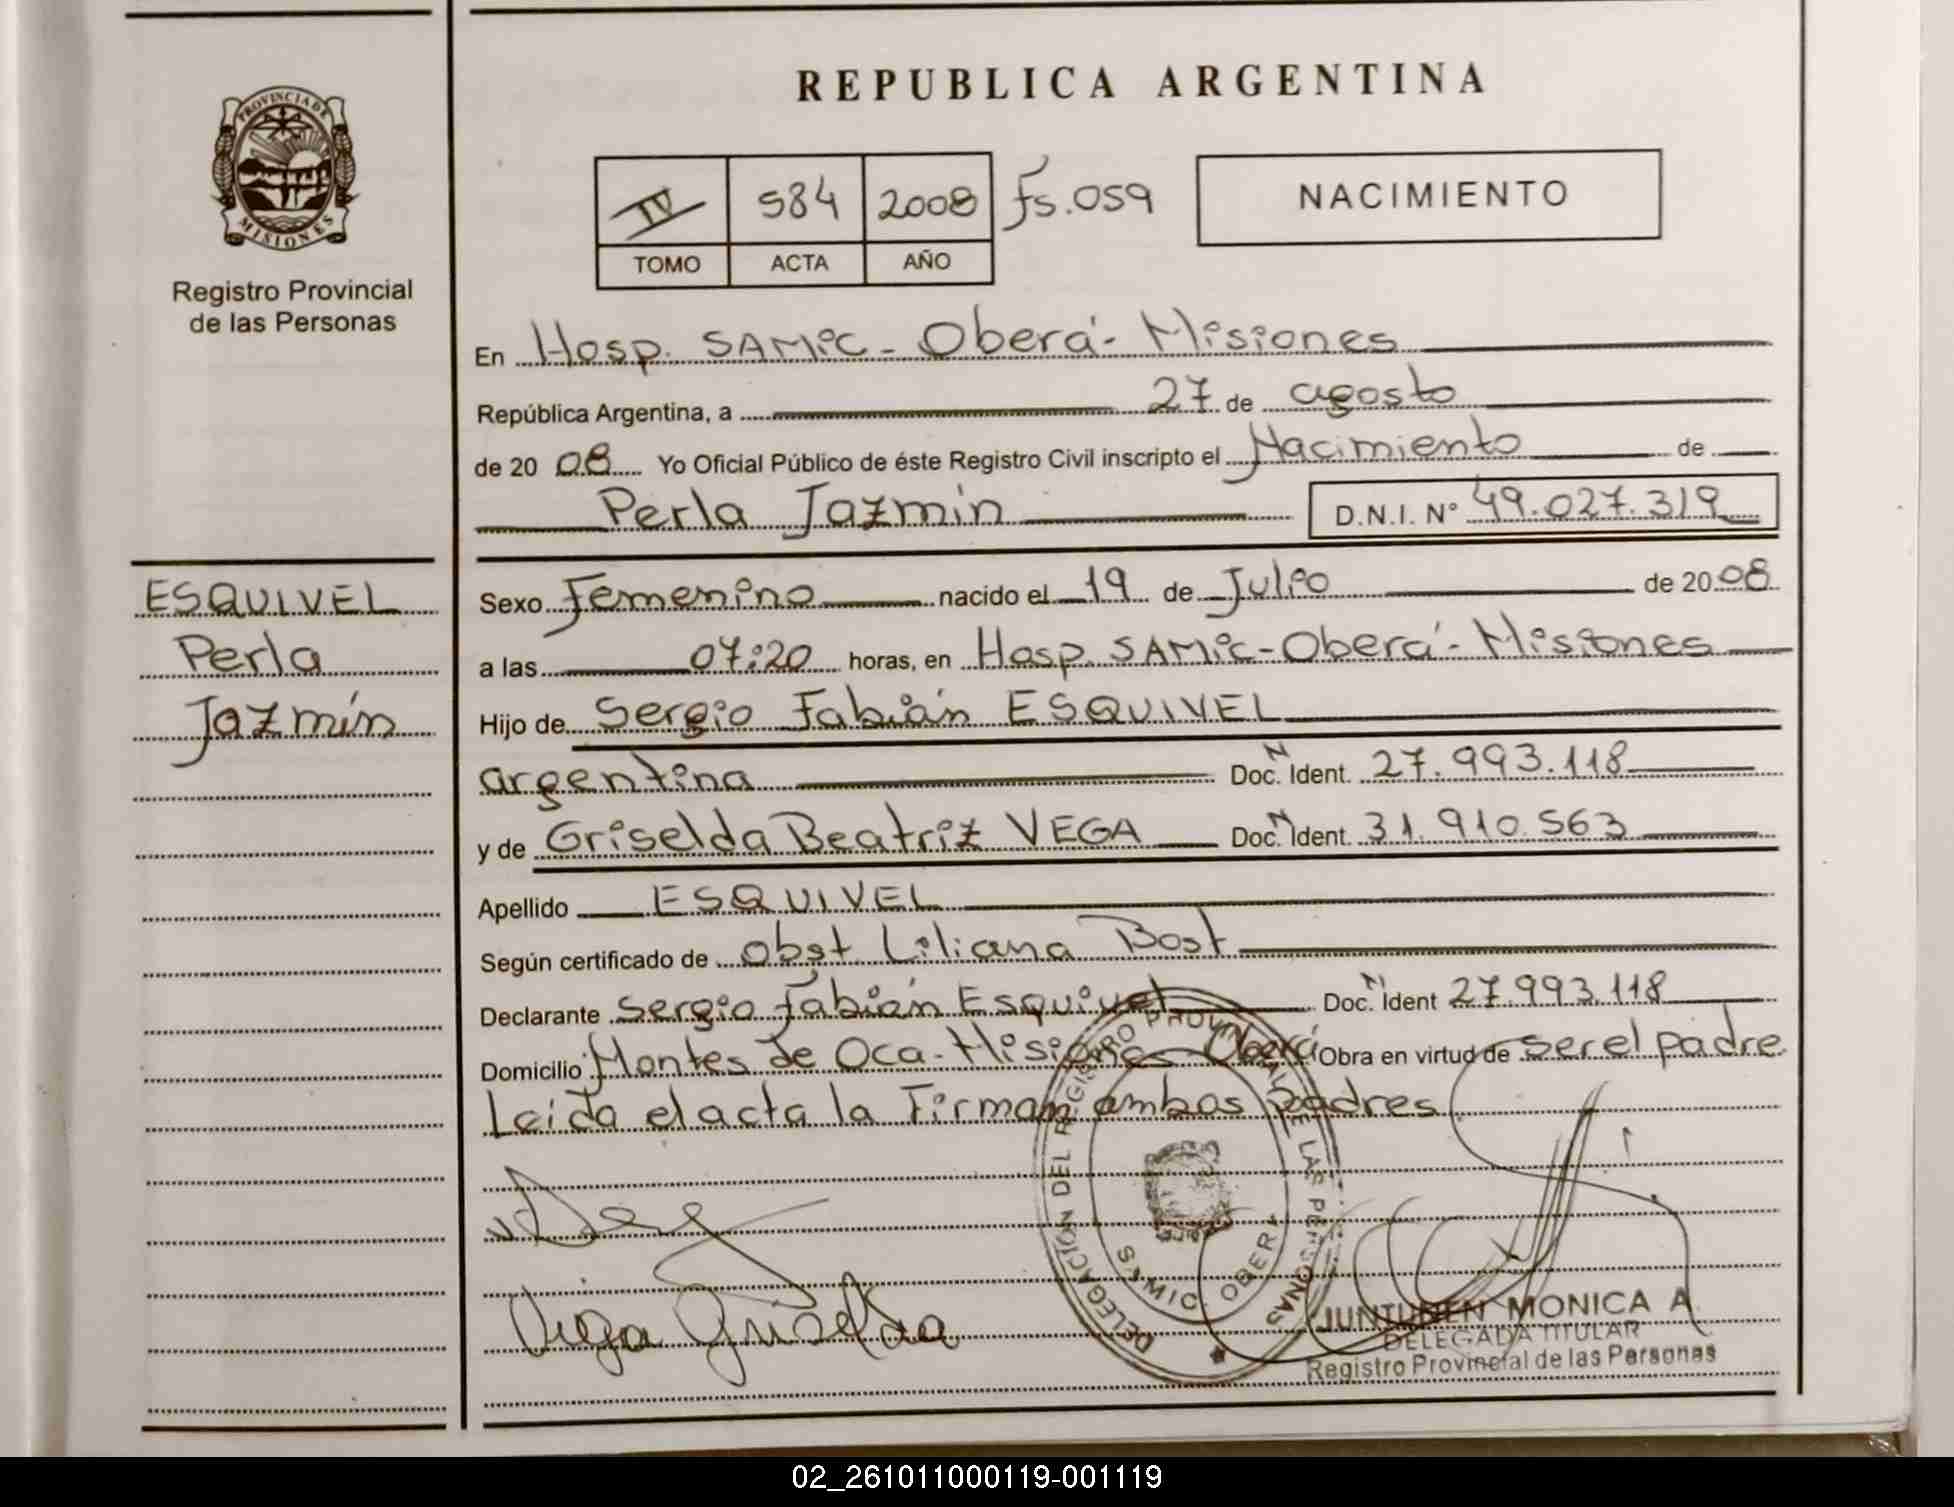 REPUBLICA ARGENTINA
PROVINCIA DE
MISIONES
Registro Provincial
de las Personas
IV 584 2008 Fs. 059
TOMO ACTA AÑO
NACIMIENTO
En Hosp. SAMIC - Oberá - Misiones
República Argentina, a 27 de agosto
de 20 08 Yo Oficial Público de éste Registro Civil inscripto el Nacimiento de
Perla Jazmín D.N.I. Nº 49.027.319
ESQUIVEL
Perla
Jazmín
Sexo Femenino nacido el 19 de Julio de 20 08
a las 07:20 horas, en Hosp. SAMIC - Oberá - Misiones
Hijo de Sergio Fabián ESQUIVEL
argentina Doc. N Ident. 27.993.118
y de Griselda Beatriz VEGA Doc. N Ident. 31.910.563
Apellido ESQUIVEL
Según certificado de Obst. Liliana Bost
Declarante Sergio Fabián Esquivel Doc. N Ident 27.993.118
Domicilio Montes de Oca - Misiones - Oberá Obra en virtud de ser el padre
Leída el acta la Firman ambos padres
DELEGACIÓN DEL REGISTRO PROVINCIAL DE LAS PERSONAS
SAMIC OBERA
Vega Griselda
JUNTUNEN MONICA A.
DELEGADA TITULAR
Registro Provincial de las Personas
02_261011000119-001119